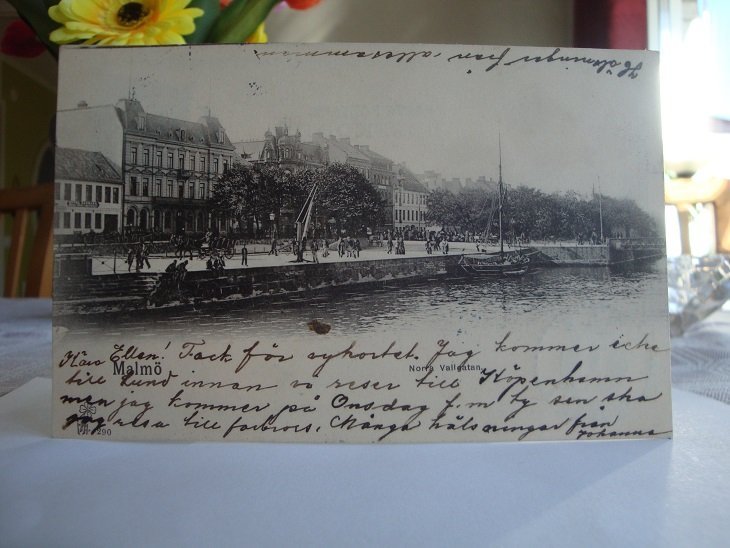 Hälsningar från allesammans
Kära Ellen! Tack för vykortet. Jag kommer icke
Malmö
Norra Vallgatan.
till Lund innan vi reser till Köpenhamn
men jag kommer på Onsdag f.m ty sen ska
jag resa till farbrors. Många hälsningar från
Johanna
290